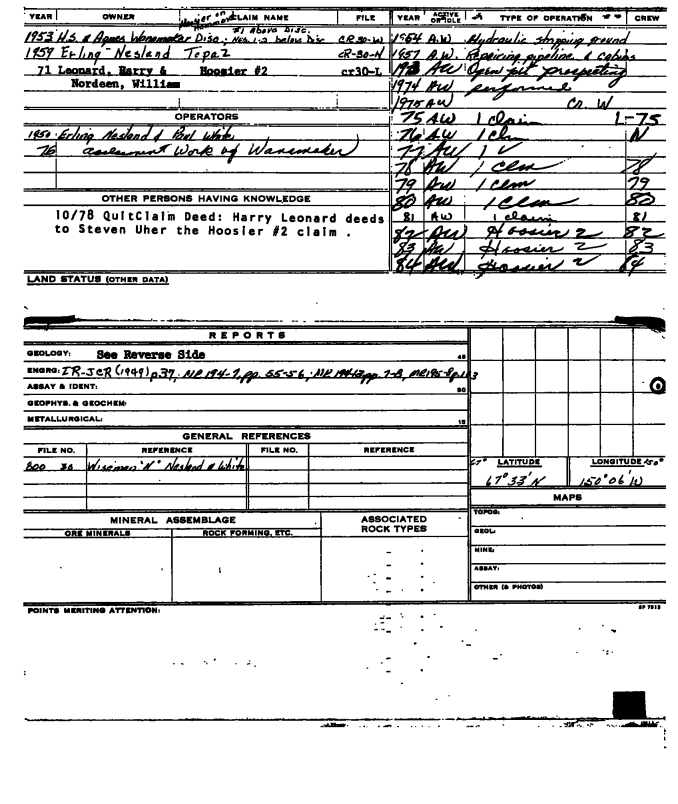 YEAR OWNER CLAIM NAME FILE
#1 above Disc.
1953 H.S. & Agnes Wanemaker Disc; Nos. 1-2 below Disc CR 30-W
1959 Erling Nesland Topaz CR-30-N
71 Leonard, Harry & Hoosier #2 cr30-L
Nordeen, William
OPERATORS
1950 Erling Nesland & Paul White
76 assessment work by Wanemaker
OTHER PERSONS HAVING KNOWLEDGE
10/78 QuitClaim Deed: Harry Leonard deeds
to Steven Uher the Hoosier #2 claim .
YEAR ACTIVE OR IDLE TYPE OF OPERATION CREW
1954 A.W. Hydraulic stripping ground
1957 A.W. Repairing pipeline & cabins
AW Open pit prospecting
1974 AW performed
1975 AW Cr. W
75 AW 1 claim 1-75
76 AW 1 clm N
77 AW 1 V
78 AW 1 clm 78
79 AW 1 clm 79
80 AW 1 clm 80
81 AW 1 claim 81
82 AW Hoosier 2 82
83 AW Hoosier 2 83
84 AW Hoosier 2 84
LAND STATUS (OTHER DATA)
REPORTS
GEOLOGY: See Reverse Side 45
ENGRG: IR-SCR (1949) p.37; MR 194-7, pp. 55-56; MR 194-13 pp. 7-8, MR 195-8
ASSAY & IDENT: 30
GEOPHYS. & GEOCHEM:
METALLURGICAL: 15
GENERAL REFERENCES
FILE NO. REFERENCE FILE NO. REFERENCE
800 30 Wiseman "N" Nesland & White
67° LATITUDE LONGITUDE 150°
67° 33' N 150° 06' W
MINERAL ASSEMBLAGE
ORE MINERALS ROCK FORMING, ETC.
ASSOCIATED
ROCK TYPES
MAPS
TOPOG:
GEOL:
MINE:
ASSAY:
OTHER (& PHOTOS)
POINTS MERITING ATTENTION: